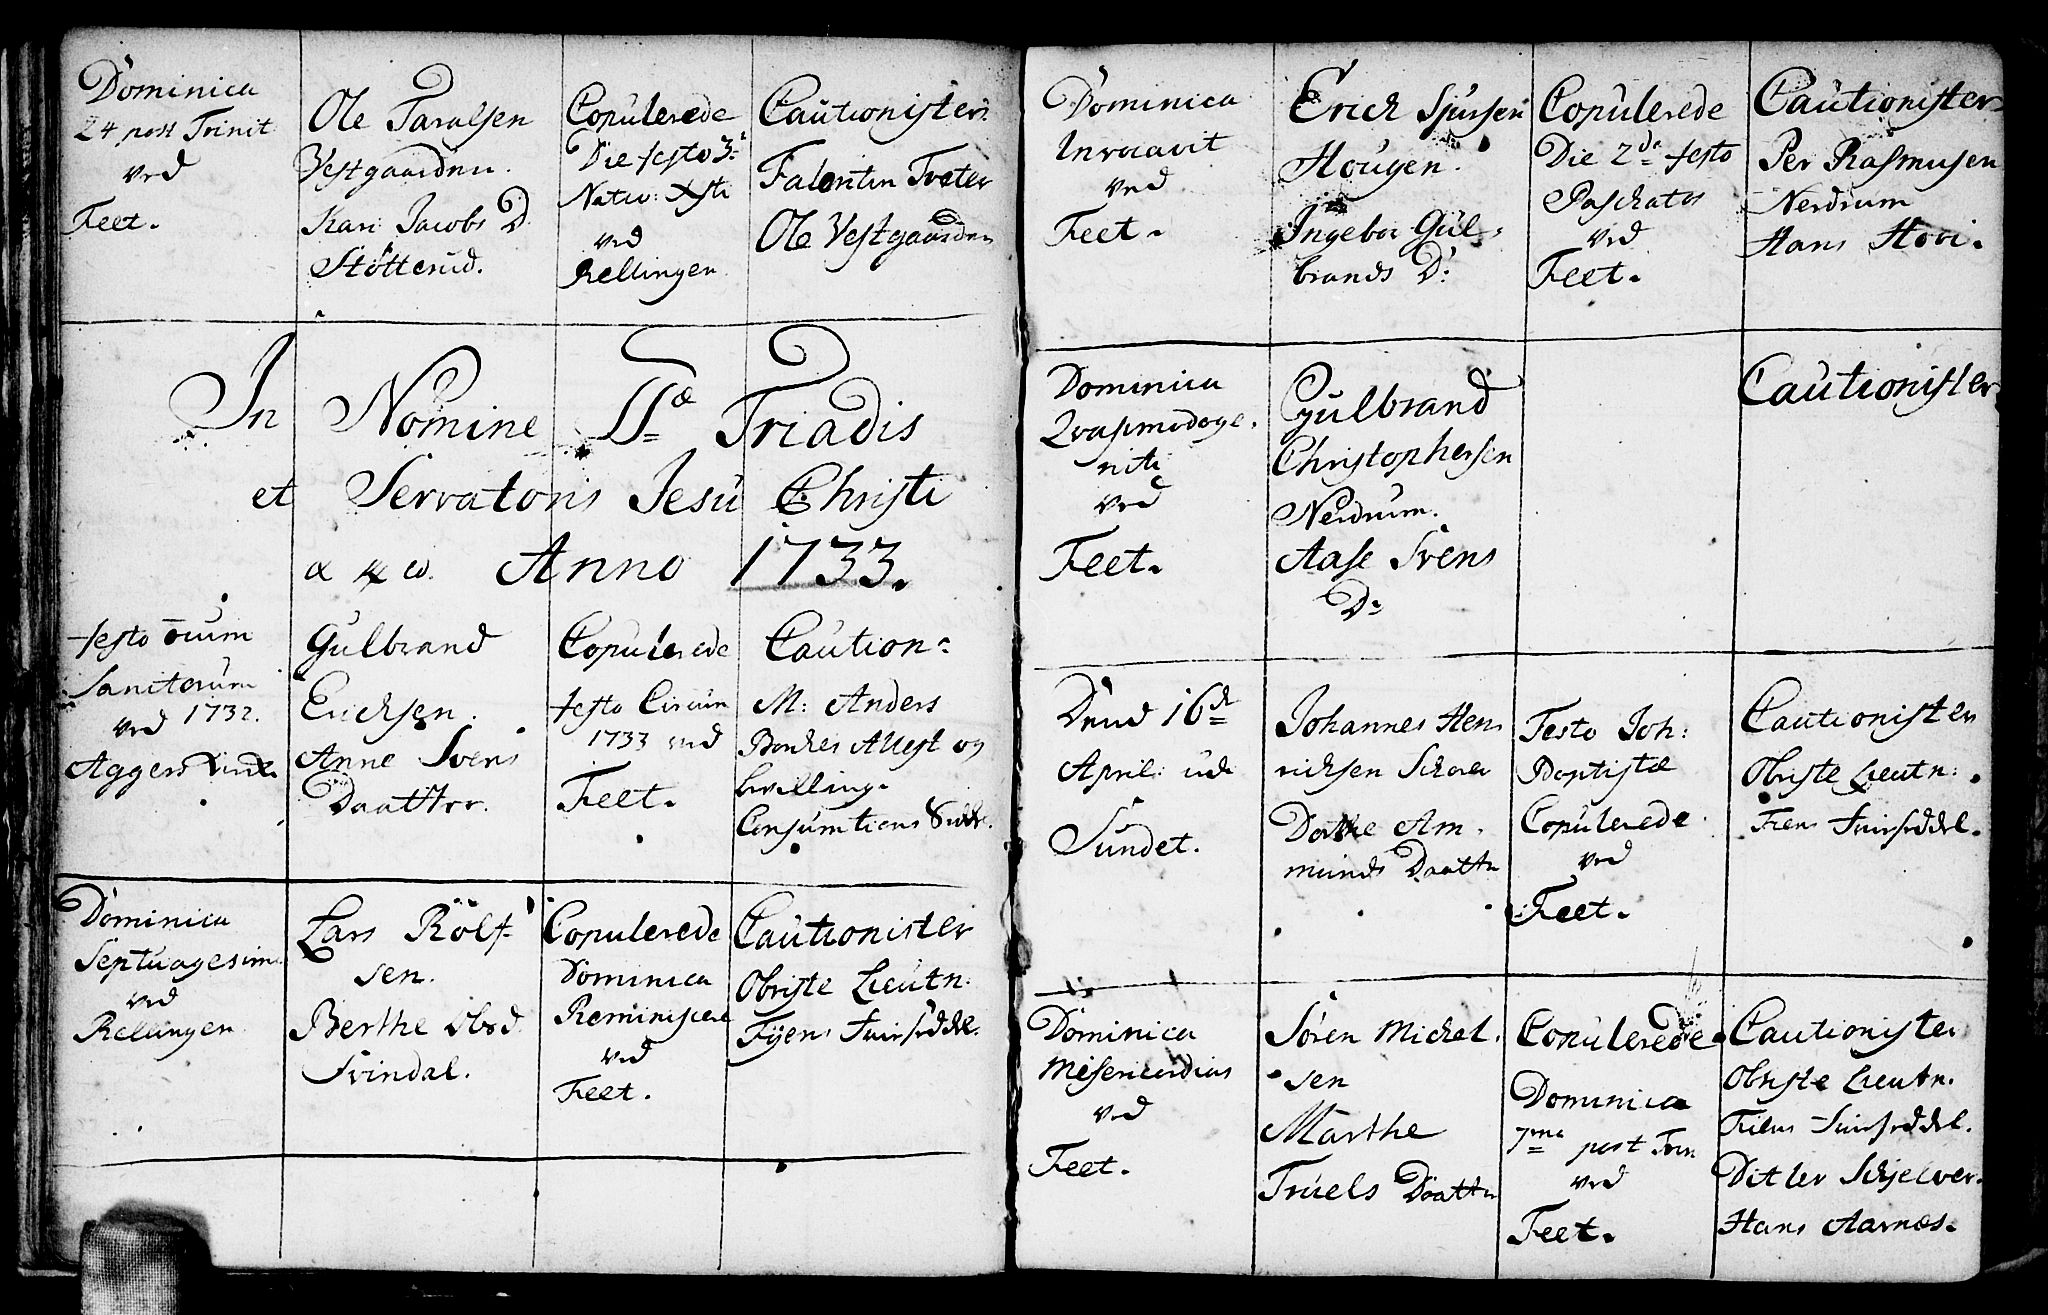 Dominica
24 post Trinit
ved
Feet.
Ole Taralsen
Vestgaarden.
Kari Jacobs D
Støtterud.
Copulerede
Die festo 3
Nativ: Xsti
ved
Rellingen
Cautionister
Falentin Tveter
Ole Vestgaarden
In Nomine SSæ Triadis
et Servatoris Jesu Christi
α & ω. Anno 1733.
festo oium
Sanctorum
ved 1732.
Aggers
Gulbrand
Erichsen.
Anne Svens
Daatter.
Copulerede
festo Circum
1733 ved
Feet.
Caution:
M: Anders
Attest og
Consumtions
Dominica
Septuagesima
ved
Rellingen
Lars Rolf-
sen.
Berthe
Svindal.
Copulerede
Dominica
Reminiscere
ved
Feet.
Cautionister
Obriste Lieutn:
Fyens
Dominica
Invocavit
ved
Feet.
Erich Sjursen
Hougen.
Ingebor Gul-
brands D:
Copulerede
Die 2de festo
Paschatos
ved
Feet.
Cautionister
Per Rasmusen
Nerdrum
Hans Hovi.
Dominica
Qvasimodoge-
niti
ved
Feet.
Gulbrand
Christophersen
Nerdrum.
Aase Svens
D:
Cautionister
Dend 16de
April: udi
Sundet.
Johannes Hen
richsen
Dorthe Am-
munds Daatter
Festo Joh:
Baptistæ
Copulerede
ved
Feet.
Cautionister
Obriste Lieutn:
Fiens
Dominica
Misericordias
ved
Feet.
Søren Michel-
sen
Marthe
Truels Daatter
Copulerede
Dominica
7me post Trin
ved
Feet.
Cautionister
Obriste Lieutn.
Fiens
Ditler Schjelver.
Hans Aarnæs.